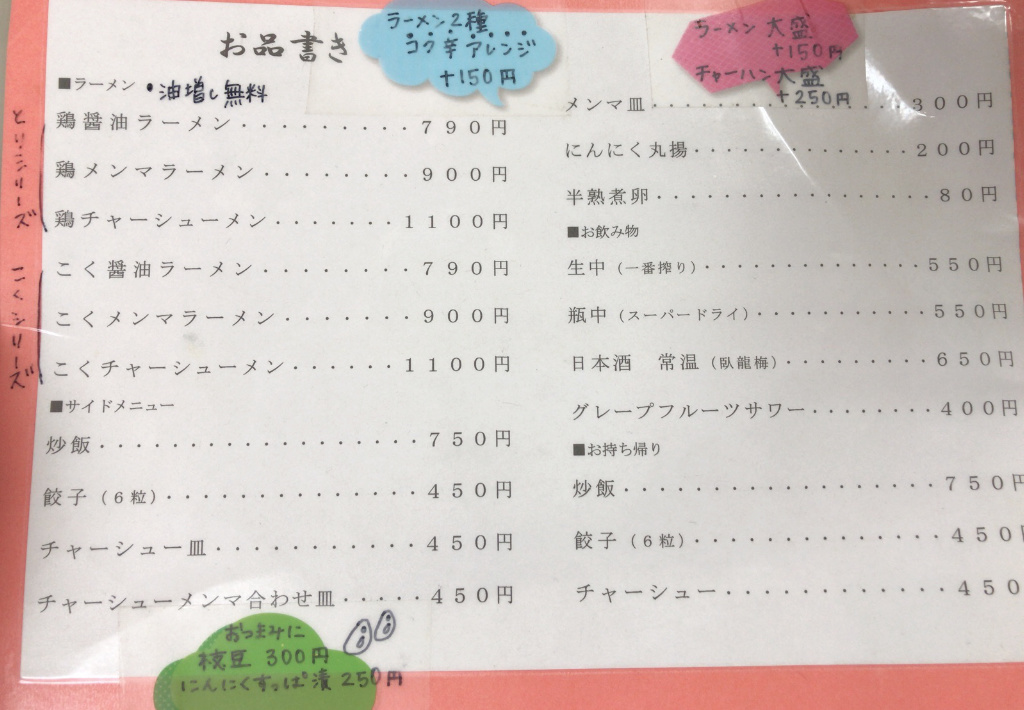 お品書き
ラーメン2種
コク辛アレンジ
+150円
ラーメン 大盛
+150円
チャーハン大盛
+250円
■ラーメン ・油増し無料
とりシリーズ
鶏醤油ラーメン・・・・・・・・・790円
鶏メンマラーメン・・・・・・・・900円
鶏チャーシューメン・・・・・・・1100円
こくシリーズ
こく醤油ラーメン・・・・・・・・790円
こくメンマラーメン・・・・・・・900円
こくチャーシューメン・・・・・・1100円
■サイドメニュー
炒飯・・・・・・・・・・・・・・・・750円
餃子（6粒）・・・・・・・・・・・・・450円
チャーシュー皿・・・・・・・・・・・450円
チャーシューメンマ合わせ皿・・・・・450円
おつまみに
枝豆 300円
にんにくすっぱ漬 250円
メンマ皿・・・・・・・・・・・・・・300円
にんにく丸揚・・・・・・・・・・・・・・200円
半熟煮卵・・・・・・・・・・・・・・・・・80円
■お飲み物
生中（一番搾り）・・・・・・・・・・・・・・550円
瓶中（スーパードライ）・・・・・・・・・・・550円
日本酒　常温（臥龍梅）・・・・・・・・・・650円
グレープフルーツサワー・・・・・・・・400円
■お持ち帰り
炒飯・・・・・・・・・・・・・・・・・・750円
餃子（6粒）・・・・・・・・・・・・・・・450円
チャーシュー・・・・・・・・・・・・・450